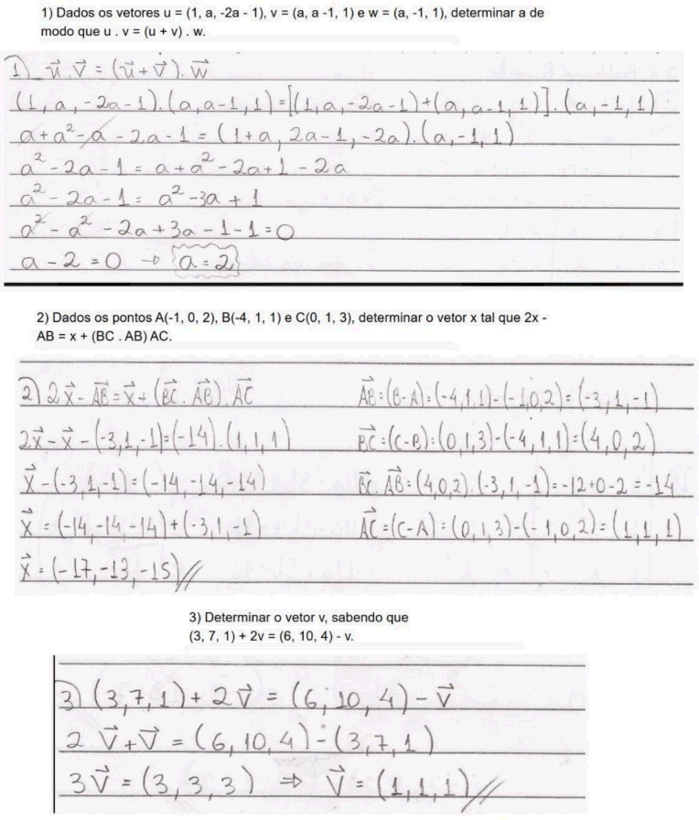 1) Dados os vetores u = (1, a, -2a - 1), v = (a, a -1, 1) e w = (a, -1, 1), determinar a de
modo que u . v = (u + v) . w.
1) u⃗.v⃗ = (u⃗+v⃗).w⃗
(1,a,-2a-1).(a,a-1,1)=[(1,a,-2a-1)+(a,a-1,1)].(a,-1,1)
a+a²-a-2a-1 = (1+a, 2a-1,-2a).(a,-1,1)
a²-2a-1 = a+a²-2a+1-2a
a²-2a-1= a²-3a+1
a²-a²-2a+3a-1-1=0
a-2=0 → a=2
2) Dados os pontos A(-1, 0, 2), B(-4, 1, 1) e C(0, 1, 3), determinar o vetor x tal que 2x -
AB = x + (BC . AB) AC.
2) 2x⃗-AB⃗=x⃗+(BC⃗.AB⃗).AC⃗
2x⃗-x⃗-(-3,1,-1)=(-14).(1,1,1)
x⃗-(-3,1,-1)=(-14,-14,-14)
x⃗ =(-14,-14,-14)+(-3,1,-1)
x⃗=(-17,-13,-15)//
AB⃗=(B-A)=(-4,1,1)-(-1,0,2)=(-3,1,-1)
BC⃗=(C-B)=(0,1,3)-(-4,1,1)=(4,0,2)
BC⃗.AB⃗=(4,0,2).(-3,1,-1)=-12+0-2=-14
AC⃗=(C-A)=(0,1,3)-(-1,0,2)=(1,1,1)
3) Determinar o vetor v, sabendo que
(3, 7, 1) + 2v = (6, 10, 4) - v.
3) (3,7,1)+2v⃗=(6,10,4)-v⃗
2v⃗+v⃗=(6,10,4)-(3,7,1)
3v⃗=(3,3,3) ⇒ v⃗=(1,1,1)//